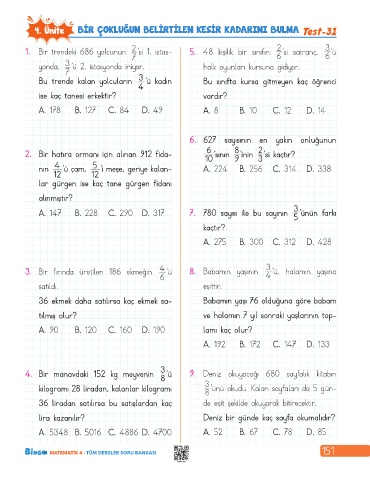 4. Ünite
BİR ÇOKLUĞUN BELİRTİLEN KESİR KADARINI BULMA Test-31
1. Bir trendeki 686 yolcunun 2/7'si 1. istas-
yonda, 3/7'ü 2. istasyonda iniyor.
Bu trende kalan yolcuların 3/4'ü kadın
ise kaç tanesi erkektir?
A. 178 B. 127 C. 84 D. 49
2. Bir hatıra ormanı için alınan 912 fida-
nın 4/12'ü çam, 5/12'i meşe, geriye kalan-
lar gürgen ise kaç tane gürgen fidanı
alınmıştır?
A. 147 B. 228 C. 290 D. 317
3. Bir fırında üretilen 186 ekmeğin 4/6'ü
satıldı.
36 ekmek daha satılırsa kaç ekmek sa-
tılmış olur?
A. 90 B. 120 C. 160 D. 190
4. Bir manavdaki 152 kg meyvenin 3/8'ü
kilogramı 28 liradan, kalanlar kilogramı
36 liradan satılırsa bu satışlardan kaç
lira kazanılır?
A. 5348 B. 5016 C. 4886 D. 4700
5. 48 kişilik bir sınıfın 2/6'si satranç, 3/6'ü
halk oyunları kursuna gidiyor.
Bu sınıfta kursa gitmeyen kaç öğrenci
vardır?
A. 8 B. 10 C. 12 D. 14
6. 627 sayısının en yakın onluğunun
6/10'sının 8/9'inin 2/3'si kaçtır?
A. 224 B. 256 C. 314 D. 338
7. 780 sayısı ile bu sayının 3/5'ünün farkı
kaçtır?
A. 275 B. 300 C. 312 D. 428
8. Babamın yaşının 3/4'ü, halamın yaşına
eşittir.
Babamın yaşı 76 olduğuna göre babam
ve halamın 7 yıl sonraki yaşlarının top-
lamı kaç olur?
A. 192 B. 172 C. 147 D. 133
9. Deniz okuyacağı 680 sayfalık kitabın
3/8'ünü okudu. Kalan sayfaları da 5 gün-
de eşit şekilde okuyarak bitirecektir.
Deniz bir günde kaç sayfa okumalıdır?
A. 52 B. 67 C. 78 D. 85
BİNGO MATEMATİK 4 - TÜM DERSLER SORU BANKASI
151